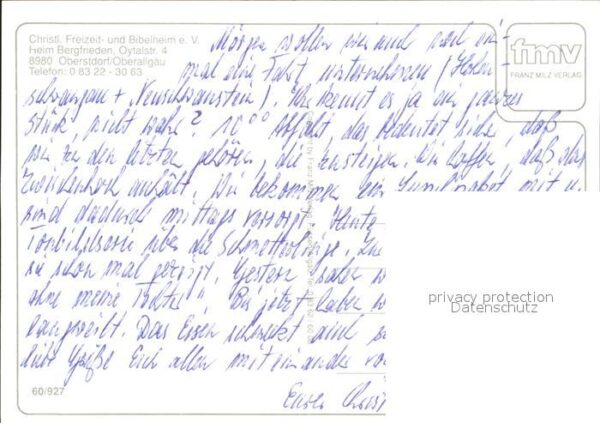 Christl. Freizeit- und Bibelheim e. V.
Heim Bergfrieden, Oytalstr. 4
8980 Oberstdorf/Oberallgäu
Telefon: 0 83 22 - 30 63
fmv
FRANZ MILZ VERLAG
Morgen wollen wir auch noch ein-
mal eine Fahrt unternehmen (Hohen-
schwangau + Neuschwanstein). Ihr kennt es ja ein
Stück, nicht wahr? 10⁰⁰ Abfahrt, das bedeutet daß
wir zu den letzten gehören, die einsteigen. Wir hoffen, daß das
Zwischenhoch anhält. Wir bekommen ein Lunchpaket mit u.
sind dadurch mittags versorgt. Heute
Tonbildserie über die Schmetterlinge.
sie schon mal gezeigt. Gestern sahen w
ohne meine Töchter". Bis jetzt haben w
langweilt. Das Essen schmeckt und
liebe Grüße Euch allen miteinander vo
Eure
60/927
privacy protection
Datenschutz